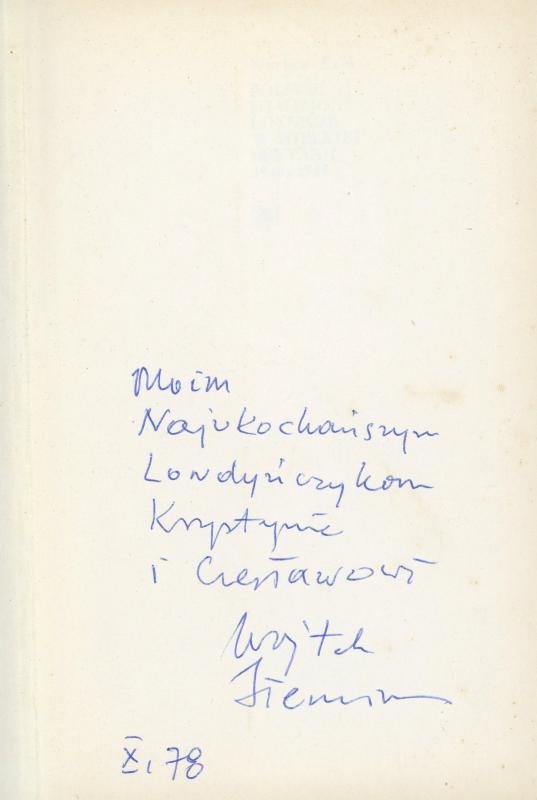 Moim
Najukochańszym
Londyńczykom
Krystynie
i Czesławowi
Wojtek
XI, 78